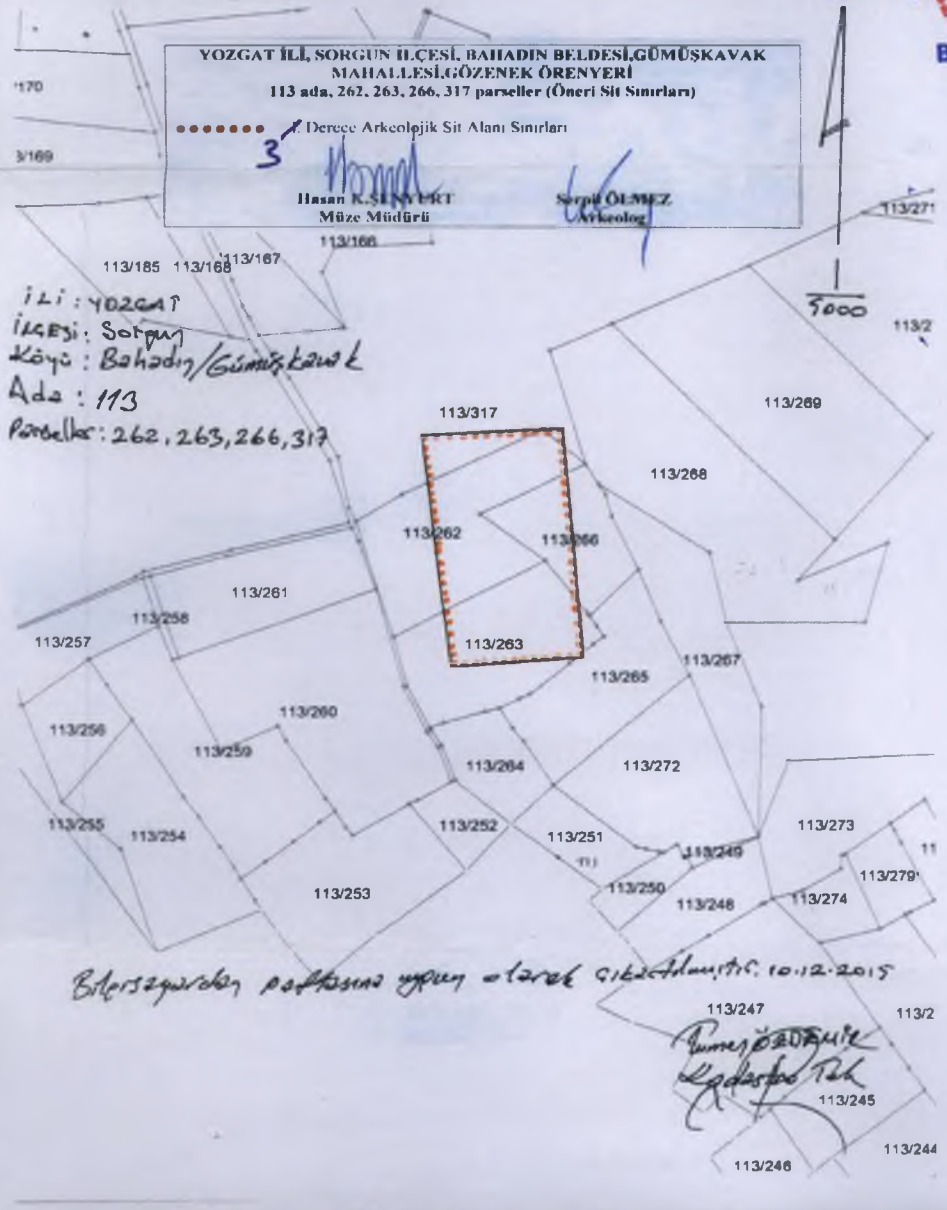 YOZGAT İLİ, SORGUN İLÇESİ, BAHADIN BELDESİ,GÜMÜŞKAVAK
MAHALLESİ,GÖZENEK ÖRENYERİ
113 ada, 262, 263, 266, 317 parseller (Öneri Sit Sınırları)
3 Derece Arkeolojik Sit Alanı Sınırları
Hasan K.ŞENYURT
Müze Müdürü
Serpil ÖLMEZ
Arkeolog
B
170
3/169
113/166
113/271
113/185 113/168 113/167
İLİ : YOZGAT
İLÇESİ : Sorgun
Köyü : Bahadın/Gümüşkavak
Ada : 113
Parseller : 262, 263, 266, 317
1
5000
113/2
113/317
113/269
113/268
113/262
113/266
113/261
113/258
113/257
113/263
113/265
113/267
113/260
113/256
113/259
113/264
113/272
113/255
113/254
113/252
113/251
113/249
113/273
11
113/253
113/250
113/248
113/274
113/279
Bilgisayardan paftasına uygun olarak çıkartılmıştır. 10.12.2015
113/247
113/2
ÖZDEMİR
Kadastro Tek
113/245
113/246
113/244